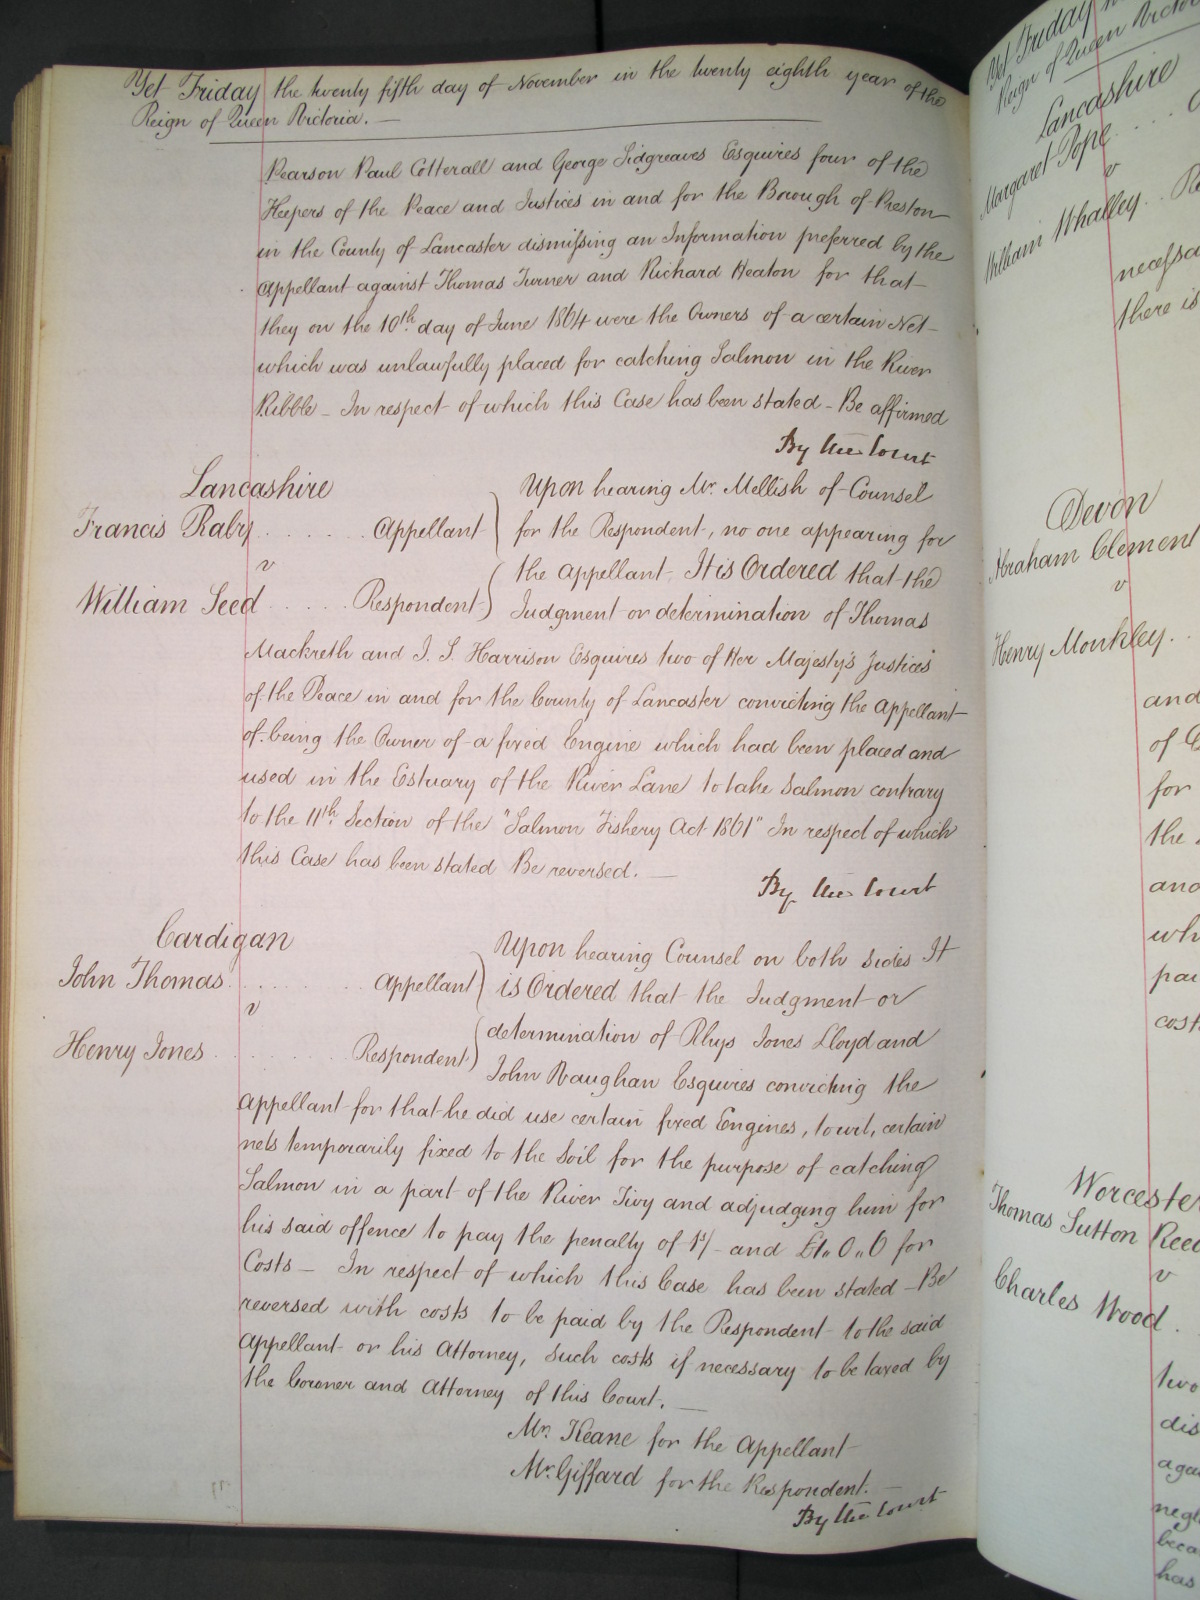 Yet Friday the twenty fifth day of November in the twenty eighth year of the
Reign of Queen Victoria. —
Pearson Paul Cotterall and George Sidgreaves Esquires four of the
Keepers of the Peace and Justices in and for the Borough of Preston
in the County of Lancaster dismissing an Information preferred by the
Appellant against Thomas Turner and Richard Heaton for that
they on the 10th day of June 1864 were the Owners of a certain Net
which was unlawfully placed for catching Salmon in the River
Ribble – In respect of which this Case has been stated – Be affirmed
By the Court
Lancashire
Francis Raby . . . . . . Appellant
v
William Seed . . . . . Respondent
Upon hearing Mr. Mellish of Counsel
for the Respondent, no one appearing for
the Appellant It is Ordered that the
Judgment or determination of Thomas
Mackreth and J. S. Harrison Esquires two of Her Majesty's Justices
of the Peace in and for the County of Lancaster convicting the Appellant
of being the Owner of a fixed Engine which had been placed and
used in the Estuary of the River Lane to take Salmon contrary
to the 11th Section of the "Salmon Fishery Act 1861" In respect of which
this Case has been stated Be reversed. —
By the Court
Cardigan
John Thomas . . . . . . Appellant
v
Henry Jones . . . . . . Respondent
Upon hearing Counsel on both sides It
is Ordered that the Judgment or
determination of Rhys Jones Lloyd and
John Vaughan Esquires convicting the
Appellant for that he did use certain fixed Engines, to wit, certain
nets temporarily fixed to the Soil for the purpose of catching
Salmon in a part of the River Tivy and adjudging him for
his said offence to pay the penalty of 1s/- and £1,, 0,, 6 for
Costs – In respect of which this Case has been stated – Be
reversed with costs to be paid by the Respondent to the said
Appellant or his Attorney, such costs if necessary to be taxed by
the Coroner and Attorney of this Court. —
Mr. Keane for the Appellant
Mr. Giffard for the Respondent. —
By the Court
Yet Friday
Reign of Queen Victor
Lancashire
Margaret Pope . . . .
v
William Whalley . .
necessa
there is
Devon
Abraham Clement
v
Henry Monkley . .
and
of
for
the
and
wh
pai
cost
Worcester
Thomas Sutton Reec
v
Charles Wood .
two
dis
aga
negl
beca
has